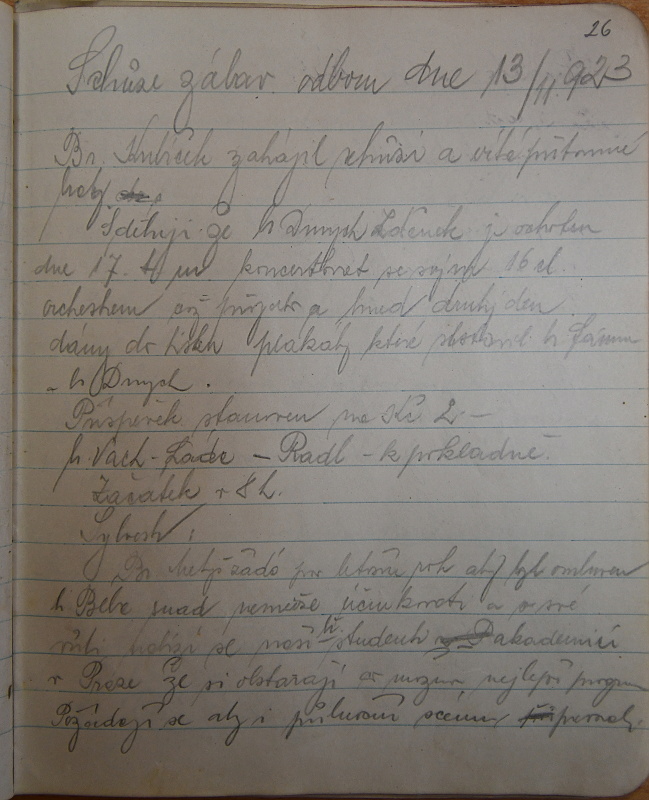 26
Schůze zábav. odboru dne 13/11. 923
Br. Kubíček zahájil schůzi a vítá přítomné
Sděluji že br Dmych Zdenek je ochoten
dne 17. t m koncertovat se svým 16 čl.
orchestrem což přijato a hned druhý den
dány do tisku plakáty které sestavil br
a br Dmych.
Příspěvek stanoven na Kč 2 —
br. Vach - - Radl - k pokladně.
Začátek v 8 h.
Sylvestr:
Br. žádá pro letošní rok aby byl omluven
br Bébr snad nemůže účinkovati a
nabízí se naši ti studenti akademici
v Praze že si obstarají co možno nejlepší program
Požadují se aby i